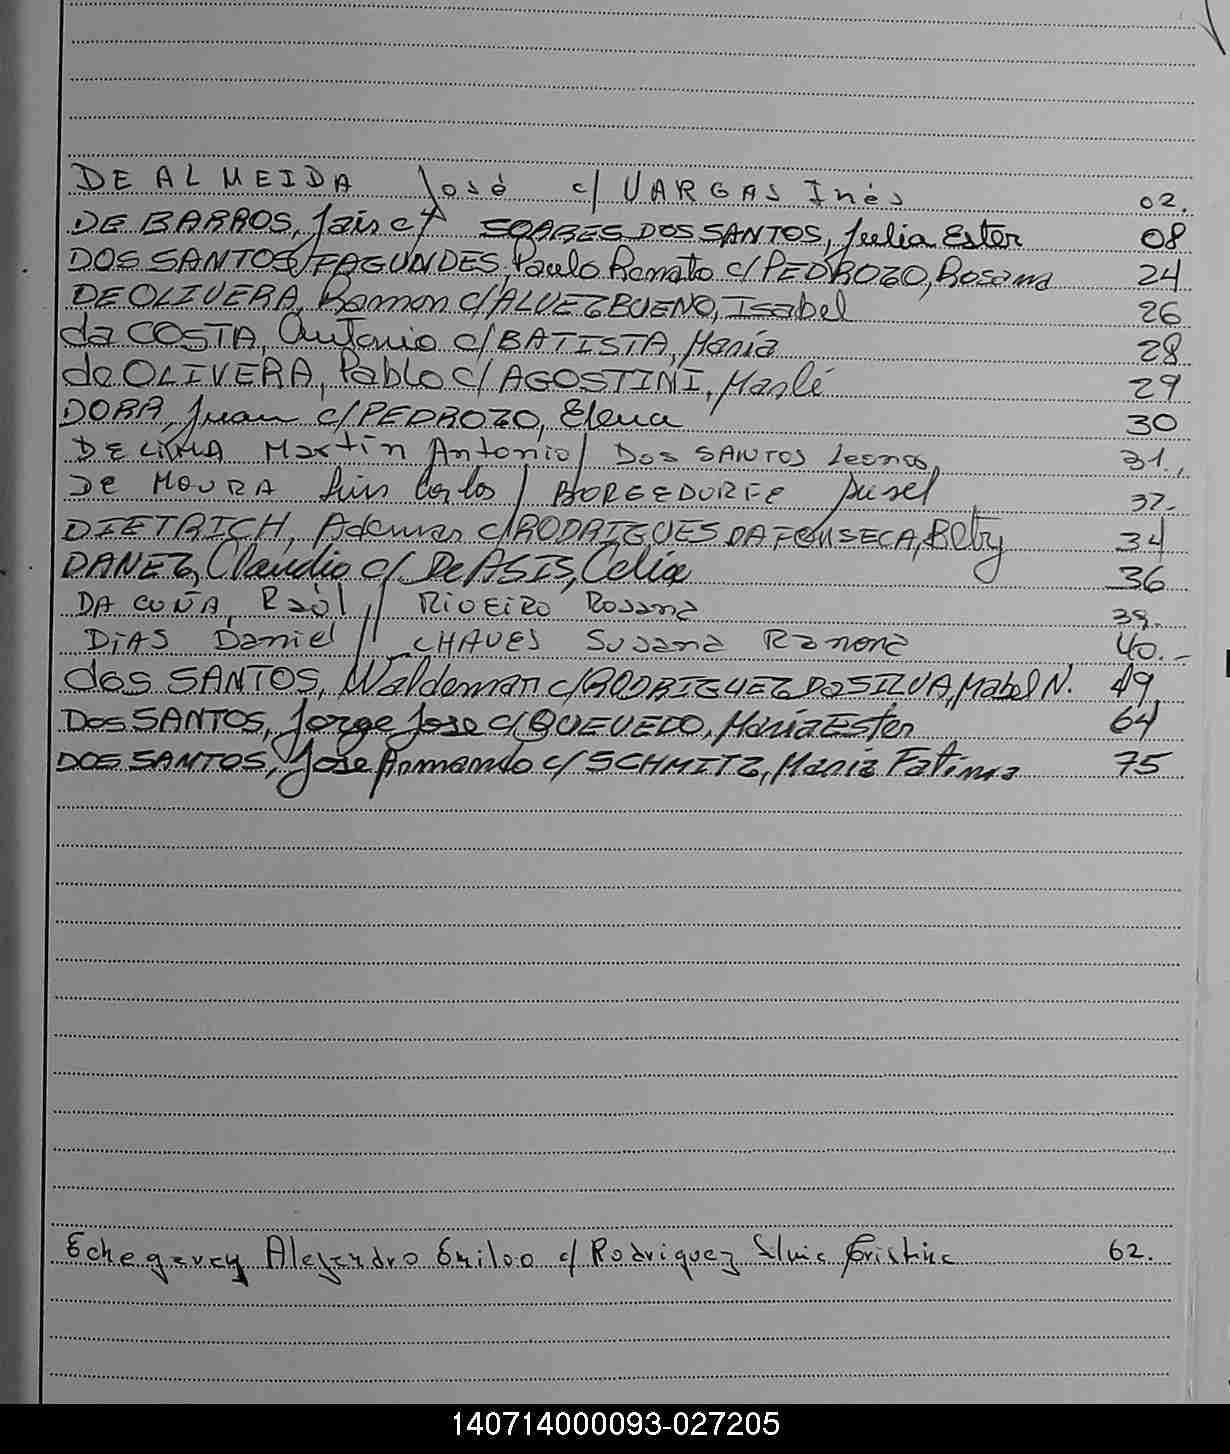 DE ALMEIDA José c/ VARGAS Inés 02.
DE BARROS, Jais c/ SOARES DOS SANTOS, Julia Ester 08
DOS SANTOS FAGUNDES, Paulo Renato c/ PEDROZO, Rosana 24
DE OLIVERA, Ramon c/ ALVEZ BUENO, Isabel 26
da COSTA, Antonio c/ BATISTA, María 28
de OLIVERA, Pablo c/ AGOSTINI, Marlé 29
DORA, Juan c/ PEDROZO, Elena 30
DE LIMA Martín Antonio / DOS SANTOS Leonor, 31.
De MOURA Luis Carlos / 32.
DIETRICH, Ademar c/ RODRIGUES DA FONSECA, Betty 34
DANEZ, Claudio c/ De ASIS, Celia 36
DA CUÑA, Raúl // RIBEIRO Rosana 38.
DIAS Daniel // CHAVES Susana Ramona 40.-
dos SANTOS, Waldeman c/ RODRIGUEZ DA SILVA, Mabel N. 49
Dos SANTOS, Jorge Jose c/ QUEVEDO, María Ester 64
DOS SANTOS, Jose Armando c/ SCHMITZ, María Fatima 75
Echegaray Alejandro Emilio c/ Rodriguez Silvia Cristina 62.
140714000093-027205